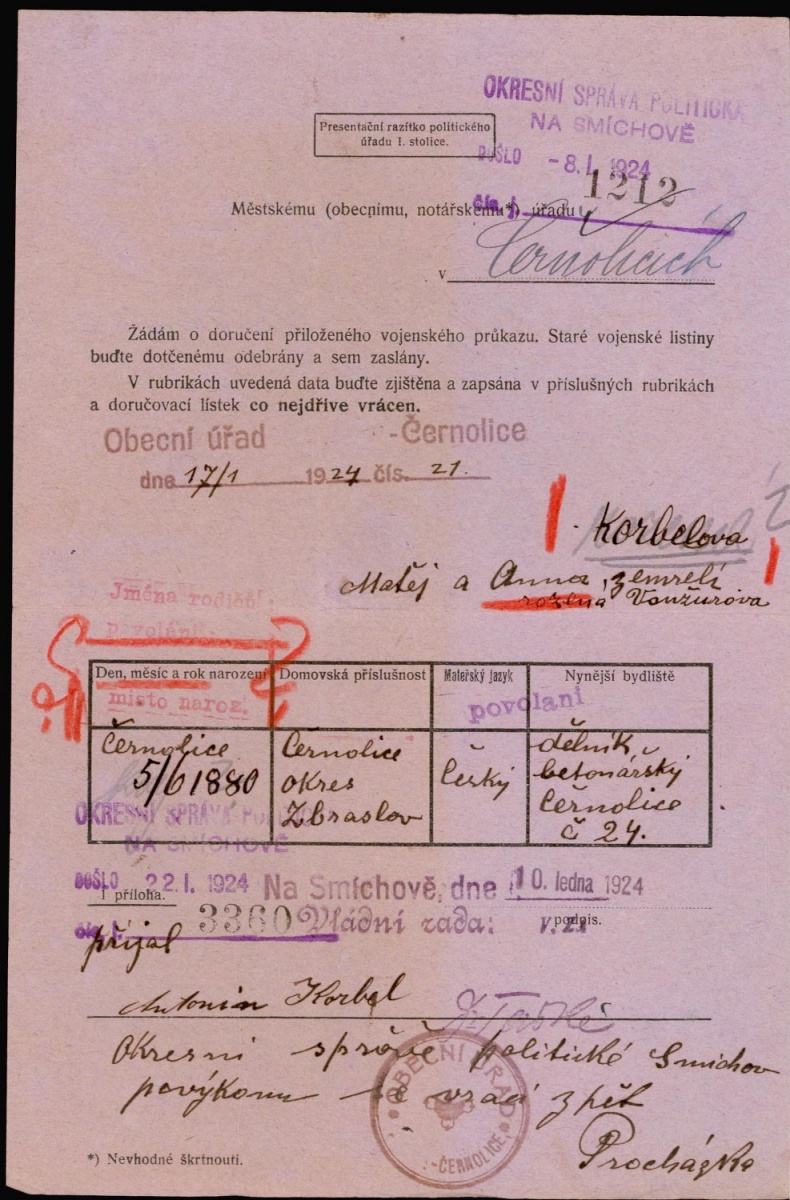 OKRESNÍ SPRÁVA POLITICKÁ
NA SMÍCHOVĚ
DOŠLO -8.I.1924
čís. j. 1212
Presentační razítko politického
úřadu I. stolice.
Městskému (obecnímu, notářskému*) úřadu
v Černolicích
Žádám o doručení přiloženého vojenského průkazu. Staré vojenské listiny
buďte dotčenému odebrány a sem zaslány.
V rubrikách uvedená data buďte zjištěna a zapsána v příslušných rubrikách
a doručovací lístek co nejdříve vrácen.
Obecní úřad -Černolice
dne 17/1 1924 čís. 21.
Korbelova
Matěj a Anna, zemřelí
rozená Vonžurova
Jména rodičů:
povolání:
Den, měsíc a rok narození Domovská příslušnost Mateřský jazyk Nynější bydliště
místo naroz. povolaní
Černolice
5/6 1880
Černolice
okres
Zbraslov
Český
dělník
betonářský
Černolice
č 24.
OKRESNÍ SPRÁVA POLITIC
NA SMÍCHOVĚ
DOŠLO 22.I.1924
Na Smíchově, dne 10. ledna 1924
1 příloha.
čís. j. 3360 Vládní rada: podpis.
přijal
Antonín Korbel
Okresní správě politické Smichov
povýkonu se vrací zpět
Procházka
OBECNÍ ÚŘAD
-ČERNOLICE
*) Nevhodné škrtnouti.